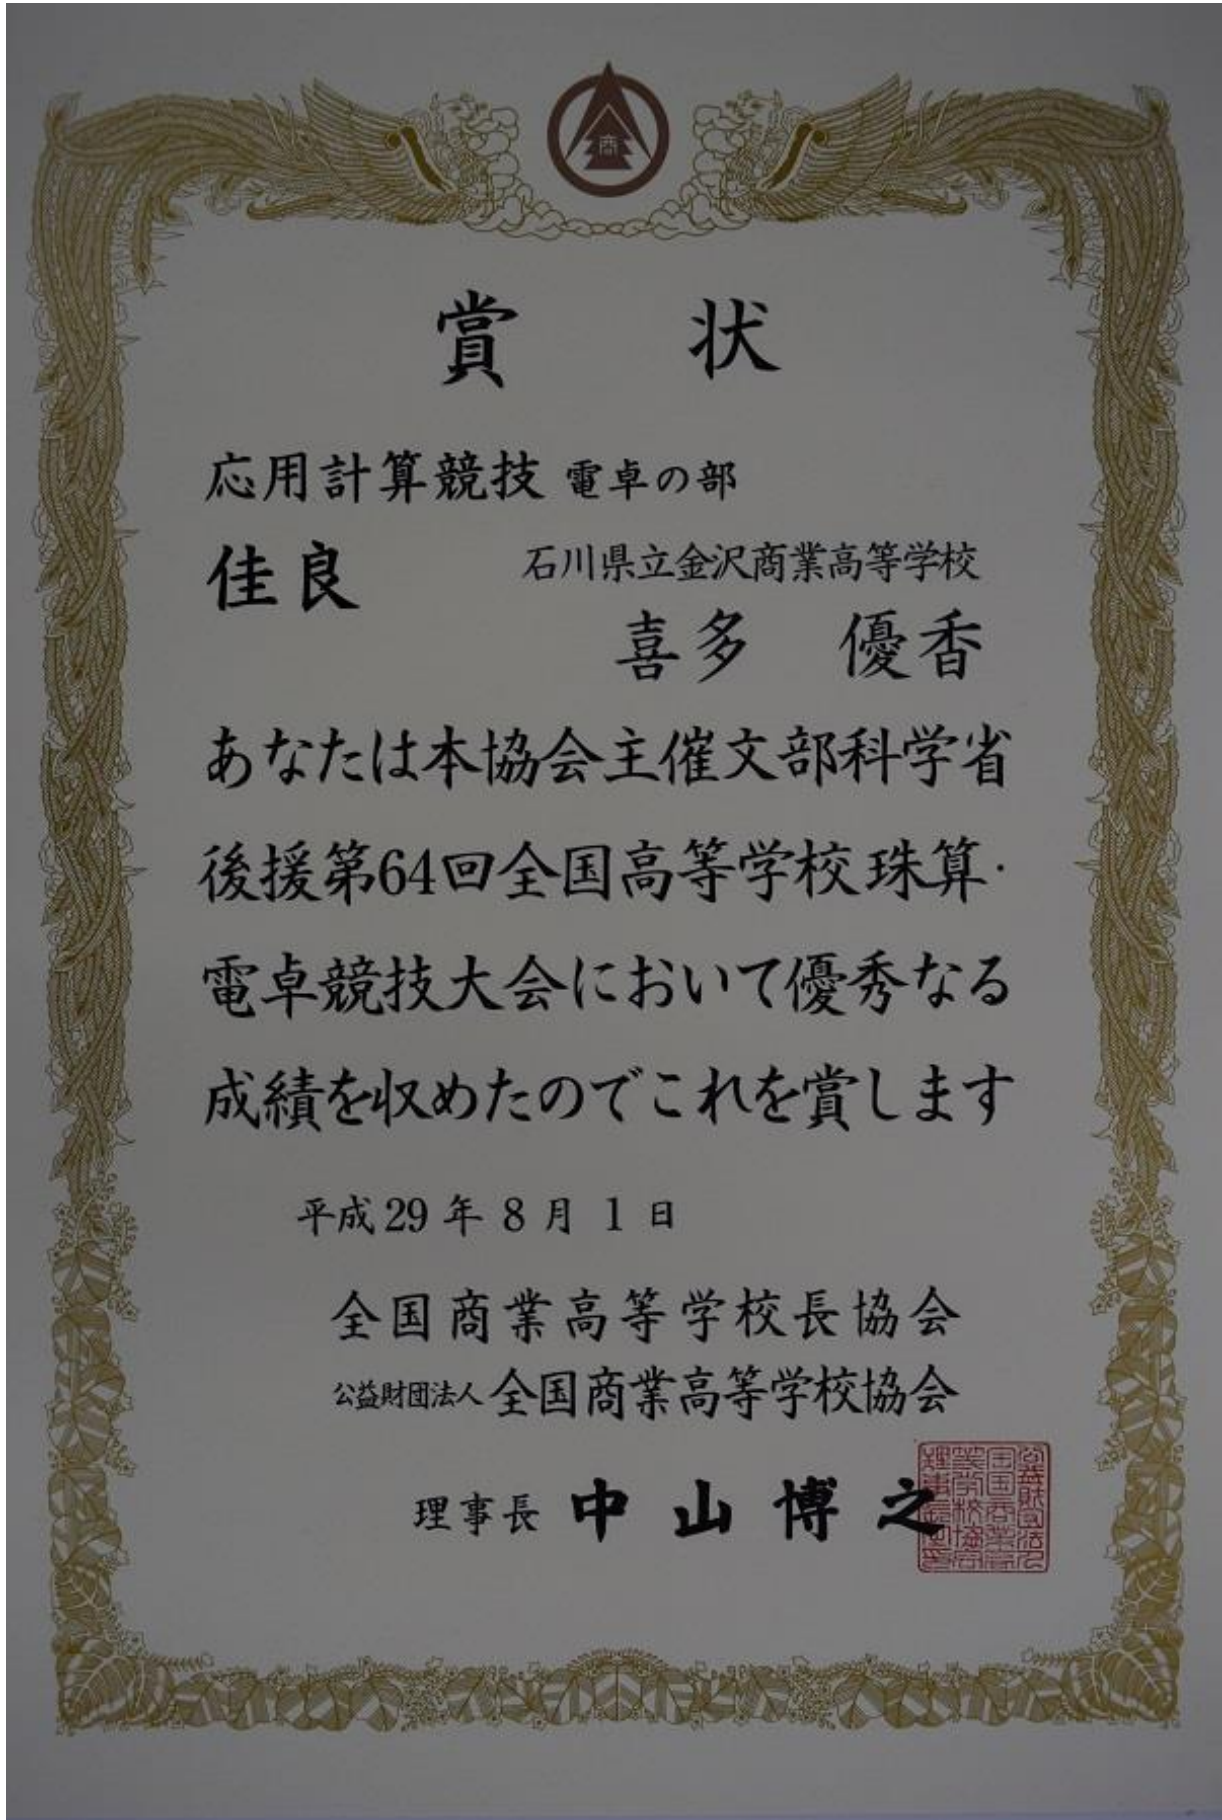 商
賞状
応用計算競技 電卓の部
佳良 石川県立金沢商業高等学校
喜多 優香
あなたは本協会主催文部科学省
後援第64回全国高等学校珠算・
電卓競技大会において優秀なる
成績を収めたのでこれを賞します
平成29年8月1日
全国商業高等学校長協会
公益財団法人 全国商業高等学校協会
理事長 中山博之